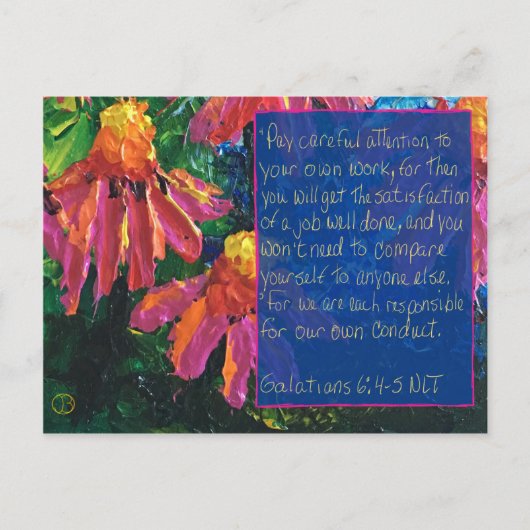 "Pay careful attention to
your own work, for then
you will get the satisfaction
of a job well done, and you
won't need to compare
yourself to anyone else,
⁵For we are each responsible
for our own conduct.
Galatians 6:4-5 NLT